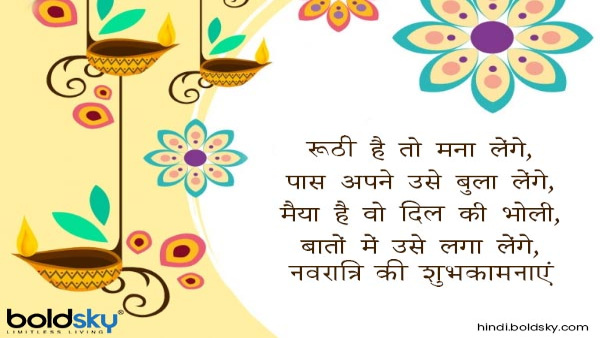 रूठी है तो मना लेंगे,
पास अपने उसे बुला लेंगे,
मैया है वो दिल की भोली,
बातों में उसे लगा लेंगे,
नवरात्रि की शुभकामनाएं
boldsky®
LIMITLESS LIVING
hindi.boldsky.com